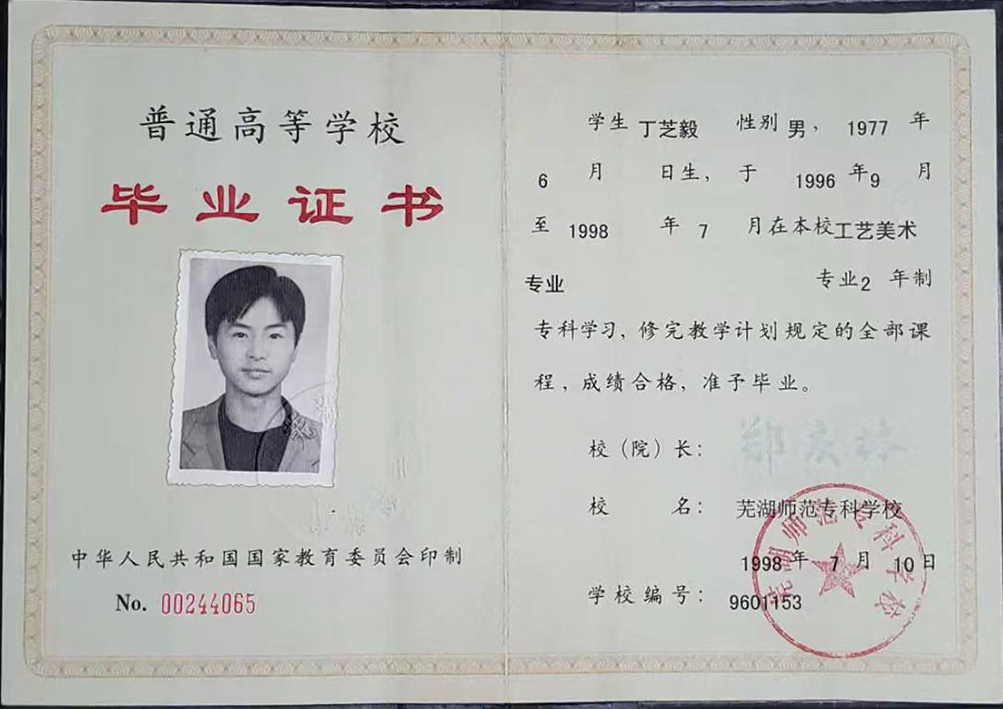 普通高等学校
毕业证书
中华人民共和国国家教育委员会印制
No. 00244065
学生 丁芝毅 性别 男， 1977 年
6 月 日生， 于 1996 年 9 月
至 1998 年 7 月在本校工艺美术
专业 专业2 年制
专科学习，修完教学计划规定的全部课
程，成绩合格，准予毕业。
校（院）长： 郑庆
校 名： 芜湖师范专科学校
1998 年 7 月 10 日
学校编号： 9601153
芜湖师范专科学校